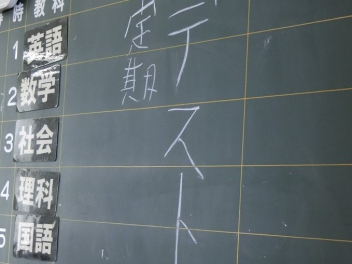 時 教科
1 英語
2 数学
3 社会
4 理科
5 国語
定期
テスト